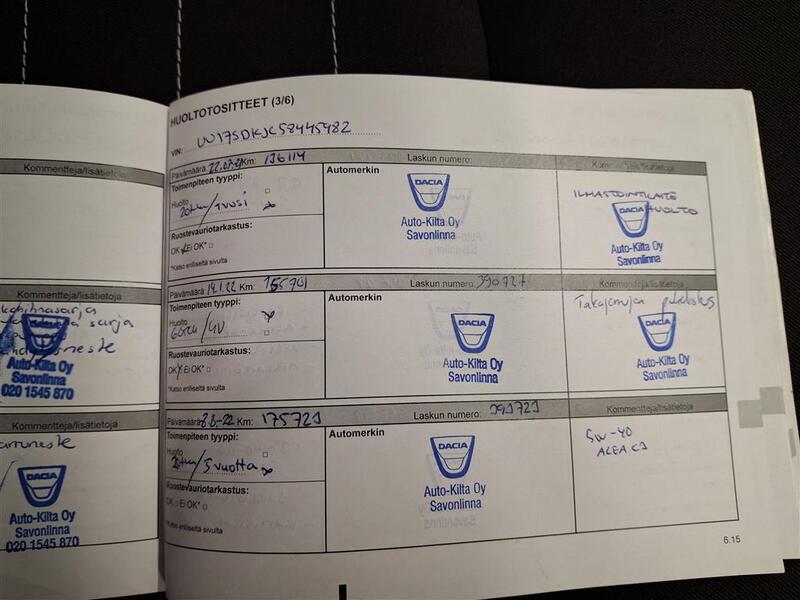 Kommentteja/lisätietoja
Kommentteja/lisätietoja
DACIA
Auto-Kilta Oy
Savonlinna
020 1545 870
Kommentteja/lisätietoja
DACIA
Auto-Kilta Oy
Savonlinna
020 1545 870
HUOLTOTOSITTEET (3/6)
VIN: UU17SDKJC58445982
Päivämäärä 22.07.21 Km: 136114 Laskun numero:
Toimenpiteen tyyppi: Automerkin
Huolto
20tkm/1vuosi
Ruostevauriotarkastus:
OK Ei OK*
*Katso erilliseltä sivulta
DACIA
Auto-Kilta Oy
Savonlinna
ILMASTOINTILAITE
HUOLTO
DACIA
Auto-Kilta Oy
Savonlinna
Päivämäärä 14.1.22 Km: 155701 Laskun numero: 390727 Kommentteja/lisätietoja
Toimenpiteen tyyppi: Automerkin
Huolto
Ruostevauriotarkastus:
OK Ei OK*
*Katso erilliseltä sivulta
DACIA
Auto-Kilta Oy
Savonlinna
Takajarruja puhdistus
DACIA
Auto-Kilta Oy
Savonlinna
Päivämäärä Km: 175723 Laskun numero: Kommentteja/lisätietoja
Toimenpiteen tyyppi: Automerkin
Huolto
20tkm/5vuotta
Ruostevauriotarkastus:
OK Ei OK*
*Katso erilliseltä sivulta
DACIA
Auto-Kilta Oy
Savonlinna
5W-40
ACEA C3
6.15